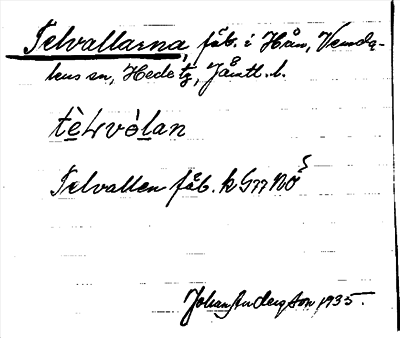 Telvallarna, fäb. i Hån, Vemda-
lens sn, Hede tg, Jämtl. l.
tèLvòlan
Telvallen fäb. k G77 NÖ
Johan Anderzson 1935.